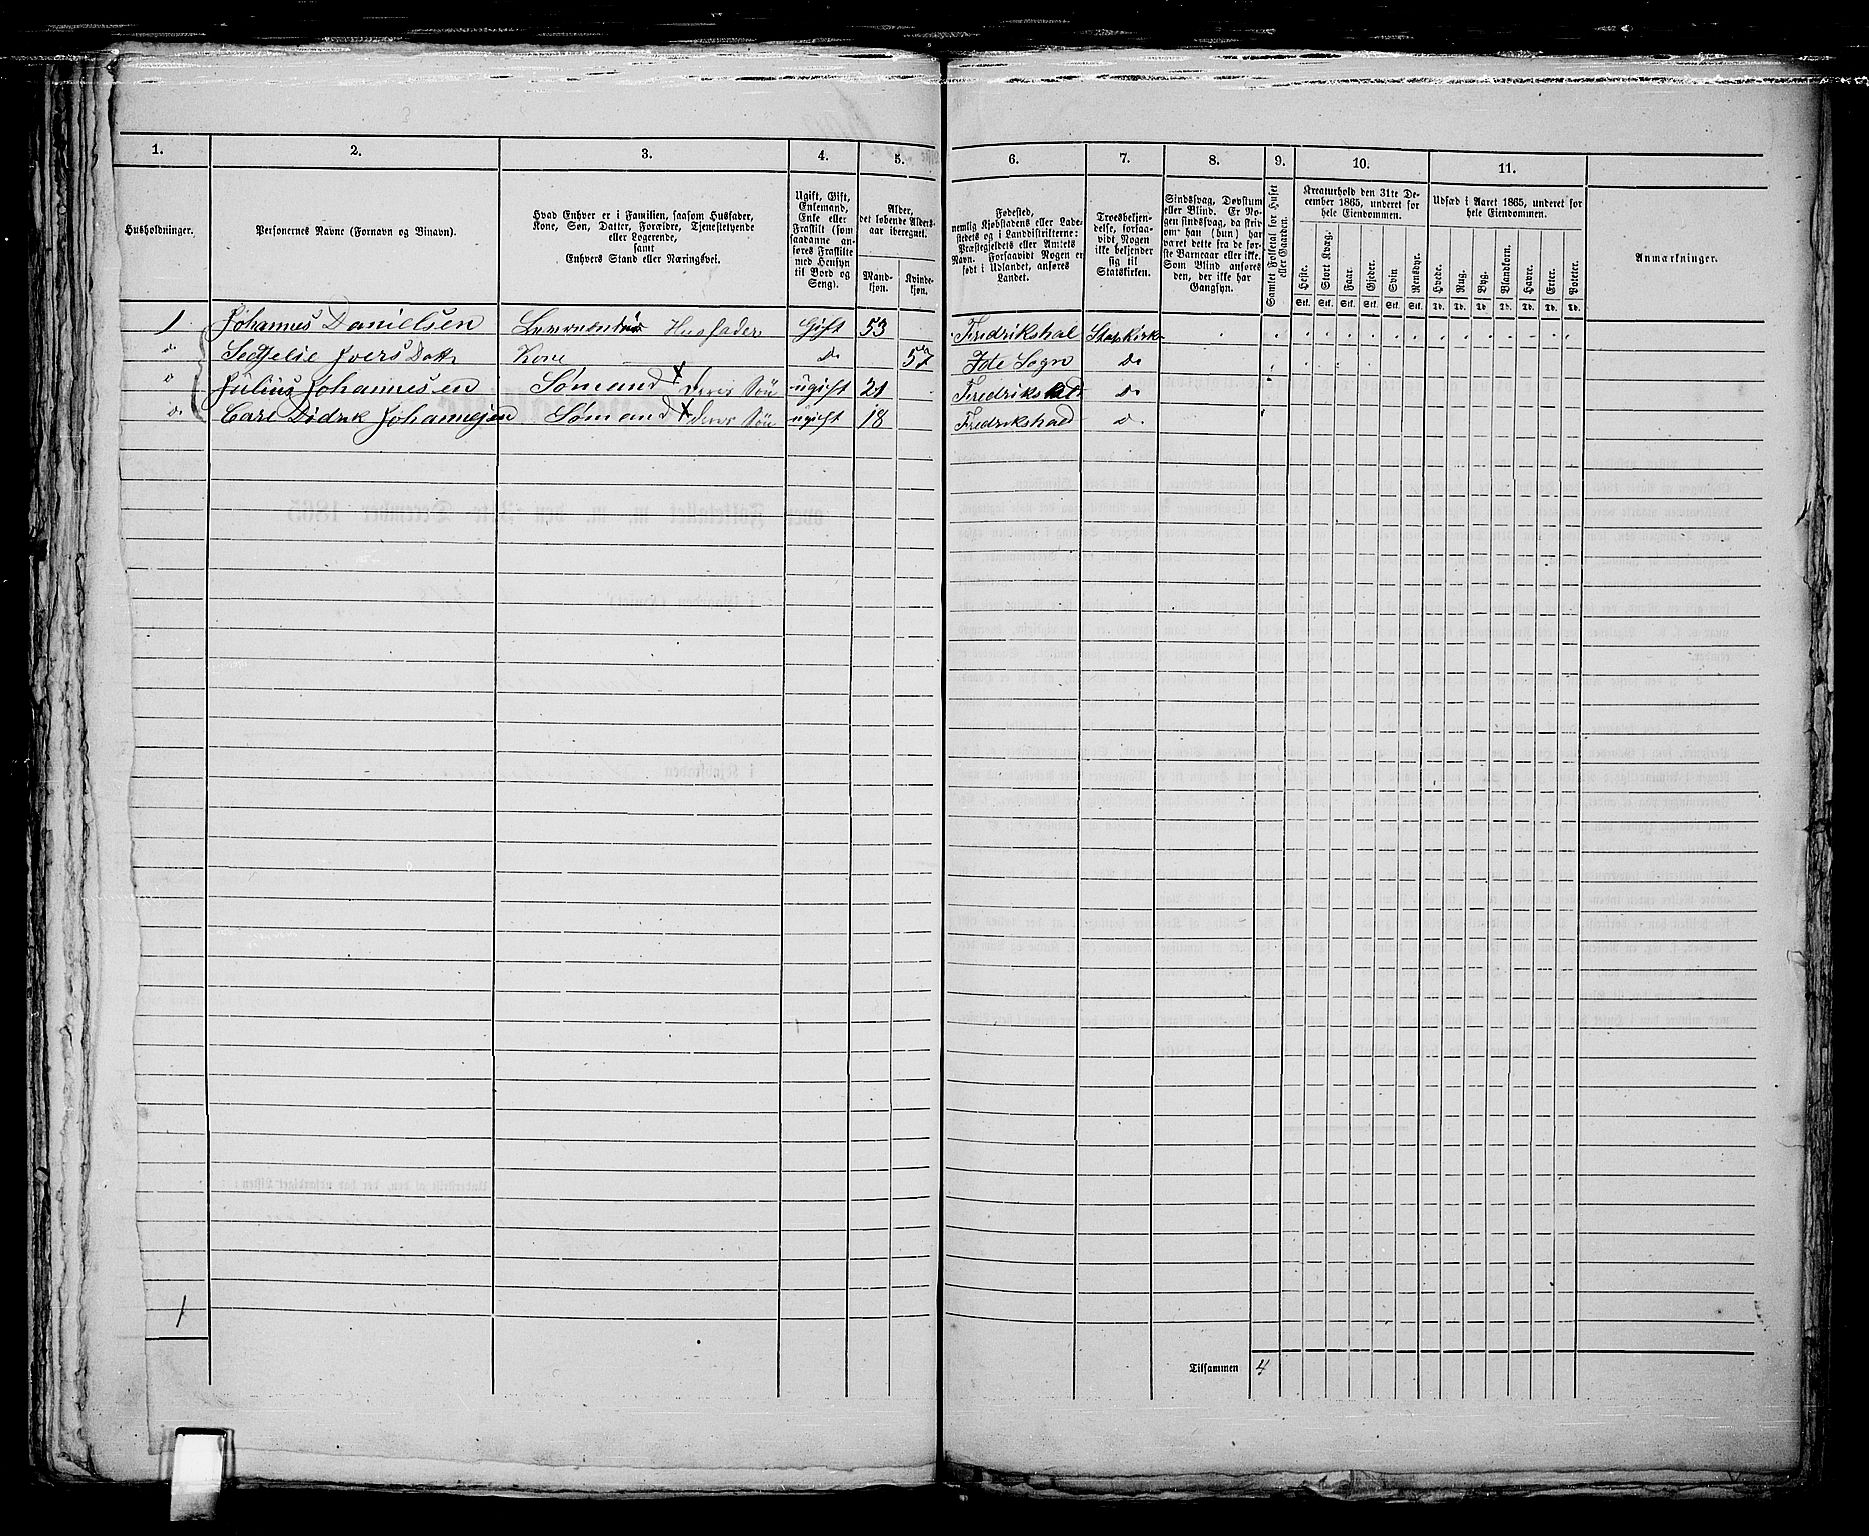 1. 2. 3. 4. 5. 6. 7. 8. 9. 10. 11.
Husholdninger.
Personernes Navne (Fornavn og Binavn).
Hvad Enhver er i Familien, saasom Husfader,
Kone, Søn, Datter, Forældre, Tjenestetyende
eller Logerende,
samt
Enhvers Stand eller Næringsvei.
Ugift, Gift,
Enkemand,
Enke eller
Fraskilt (som
saadanne an-
føres Fraskilte
med Hensyn
til Bord og
Seng).
Alder,
det løbende Alders-
aar iberegnet.
Mand-
kjøn.
Kvinde-
kjøn.
Fødested,
nemlig Kjøbstadens eller Lade-
stedets og i Landdistrikterne:
Præstegjeldets eller Amtets
Navn. Forsaavidt Nogen er
født i Udlandet, anføres
Landet.
Troesbekjen-
delse, forsaa-
vidt Nogen
ikke bekjender
sig til
Statskirken.
Sindssvag, Døvstum
eller Blind. Er No-
gen sindssvag, da skriv
om han (hun) har
været dette fra de før-
ste Barneaar eller ikke.
Som Blind anføres
den, der ikke har
Gangsyn.
Samlet Folketal for Huset
eller Gaarden.
Kreaturhold den 31te De-
cember 1865, underet for
hele Eiendommen.
Heste. Stort Kvæg. Faar. Gjeder. Svin. Rensdyr.
Stk. Stk. Stk. Stk. Stk. Stk.
Udsæd i Aaret 1865, underet for
hele Eiendommen.
Hvede. Rug. Byg. Blandkorn. Havre. Erter. Poteter.
Td. Td. Td. Td. Td. Td. Td.
Anmærkninger.
1 Johannes Danielsen Husfader Gift 53 Fredrikshal Stats Kirk
do Ivers Datt Kone do 57 Ide Sogn do
do Julius Johannesen Sømand x deres Søn ugift 21 Fredrikshald do
do Carl Didrk Johannesen Sømand x deres Søn ugift 18 Fredrikshald do
1
Tilsammen 4